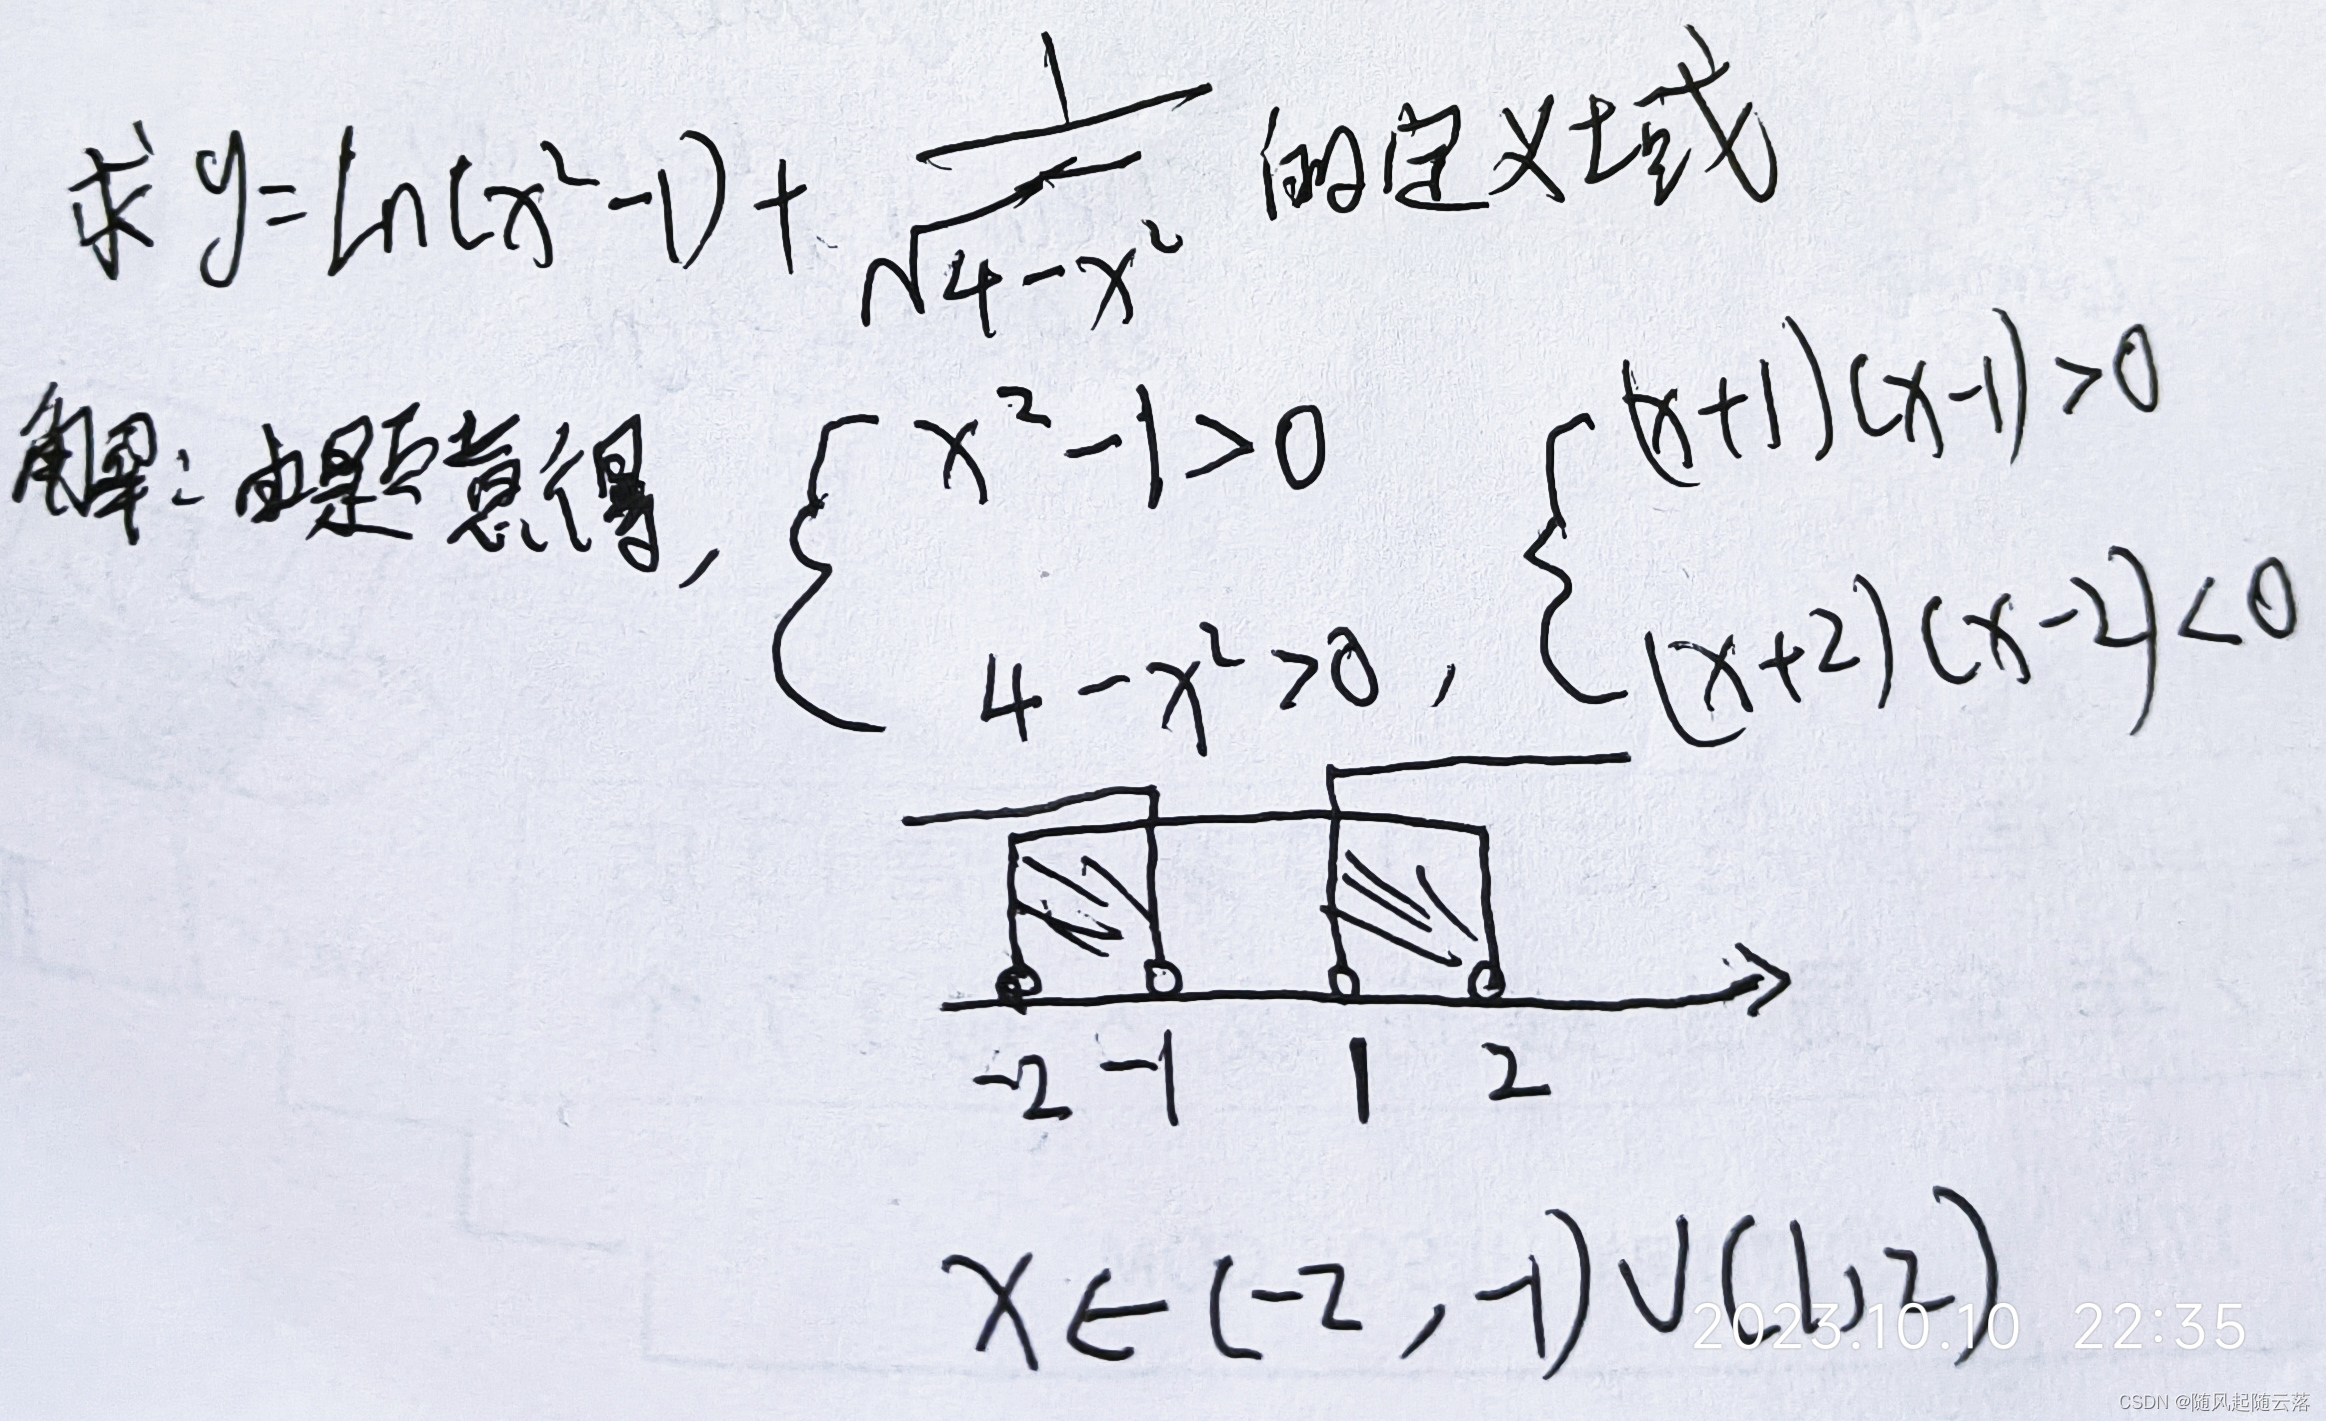 求 y=ln(x²-1)+1/√(4-x²) 的定义域
解：由题意得，{x²-1>0 {(x+1)(x-1)>0
4-x²>0， (x+2)(x-2)<0
-2 -1 1 2
x∈(-2,-1)∪(1,2)
2023.10.10 22:35
CSDN @随风起随云落